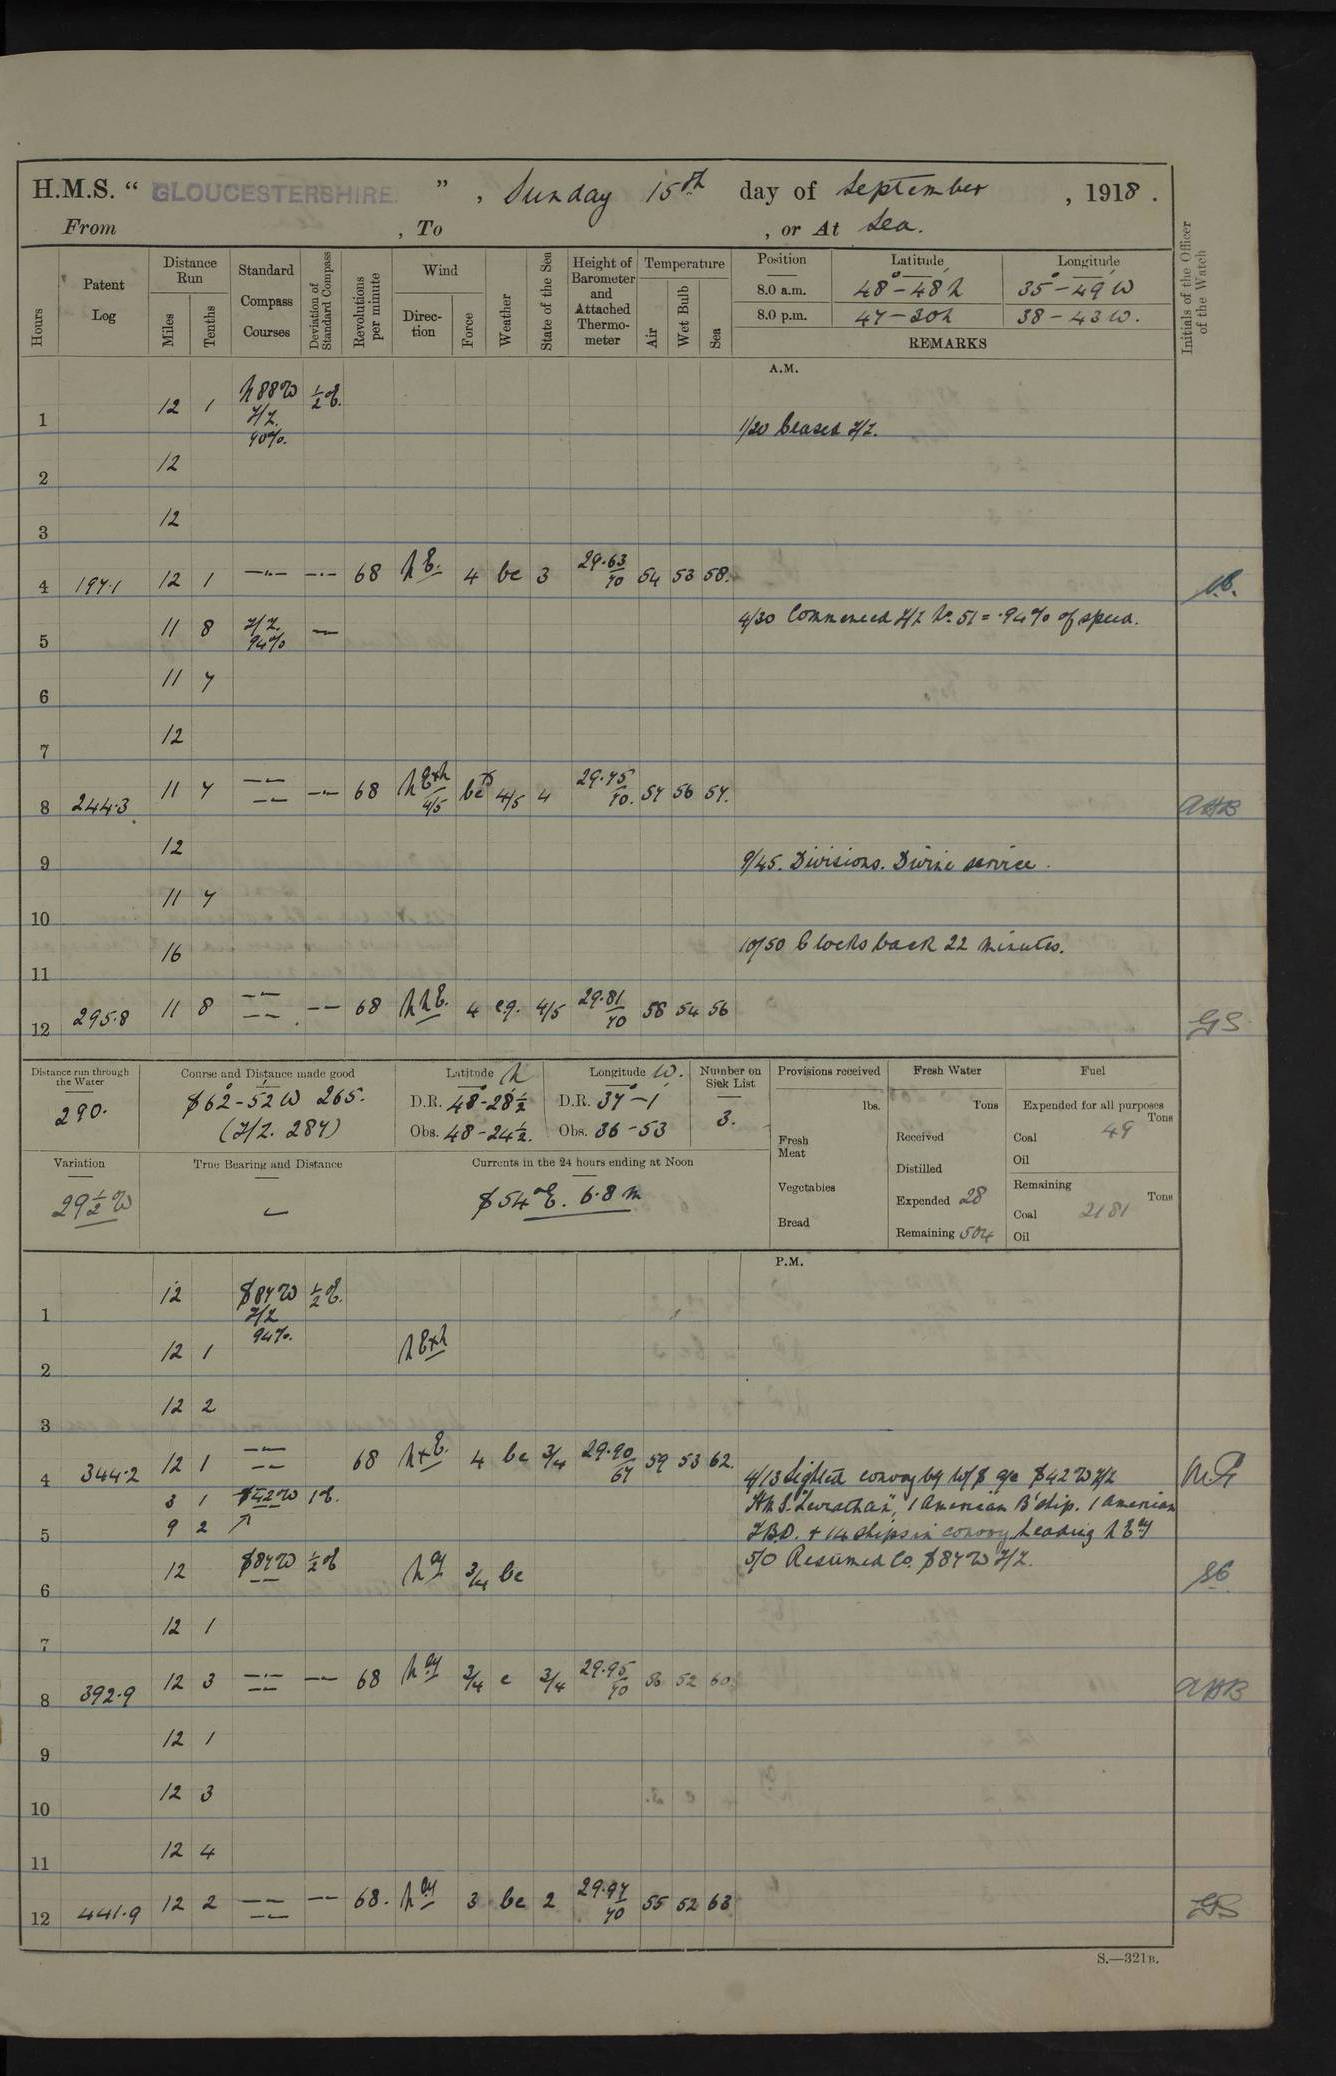 H.M.S. “ GLOUCESTERSHIRE. ” , Sunday 15th day of September , 1918 .
From , To , or At Sea.
Hours
Patent Log
Distance Run
Miles
Tenths
Standard Compass Courses
Deviation of Standard Compass
Revolutions per minute
Wind
Direction
Force
Weather
State of the Sea
Height of Barometer and Attached Thermometer
Temperature
Air
Wet Bulb
Sea
Position Latitude Longitude
8.0 a.m. 48°-48'N 35°-49'W
8.0 p.m. 47-30N 38-43W.
REMARKS
Initials of the Officer of the Watch
A.M.
1 12 1 N88W ½E.
Z/Z.
90%.
1/20 Ceased Z/Z.
2 12
3 12
4 197.1 12 1 —·— —·— 68 NE. 4 bc 3 29.63/70 54 53 58.
5 11 8 Z/Z. —
94%
4/30 Commenced Z/Z No 51 = .94% of speed.
6 11 7
7 12
8 244.3 11 7 —— —·— 68 NExN 4/5 bc 4/5 4 29.75/70. 57 56 57. AHB
9 12 9/45. Divisions. Divine service.
10 11 7
11 16 10/50 Clocks back 22 minutes.
12 295.8 11 8 —— —— 68 NNE. 4 c.q. 4/5 29.81/70 58 54 56 GS
Distance run through the Water
290.
Course and Distance made good
S62°-52'W 265.
(Z/Z. 287)
Latitude N
D.R. 48-28½
Obs. 48-24½.
Longitude W.
D.R. 37-1
Obs. 36-53
Number on Sick List
3.
Provisions received
lbs.
Fresh Meat
Vegetables
Bread
Fresh Water
Tons
Received
Distilled
Expended 28
Remaining 504
Fuel
Expended for all purposes
Tons
Coal 49
Oil
Remaining
Tons
Coal 2181
Oil
Variation
29½W
True Bearing and Distance
Currents in the 24 hours ending at Noon
S54°E. 6.8 m
P.M.
1 12 S87W ½E.
Z/Z
94%.
2 12 1 NExN
3 12 2
4 344.2 12 1 —— 68 NxE. 4 bc 3/4 29.90/67 59 53 62.
4/13 Sighted convoy bg W/S a/c S42W Z/Z
3 1 S42W 1E.
H.M.S. "Leviathan", 1 American B'ship. 1 American
5 9 2
T.B.D. + 14 ships in convoy heading NE'ly
5/0 Resumed Co. S87W Z/Z.
6 12 S87W ½E N'ly 3/4 bc
7 12 1
8 392.9 12 3 —·— —— 68 N'ly 3/4 c 3/4 29.95/70 56 52 60. AHB
9 12 1
10 12 3
11 12 4
12 441.9 12 2 —— —— 68. N'ly 3 bc 2 29.97/70 55 52 63 GS
S.—321B.